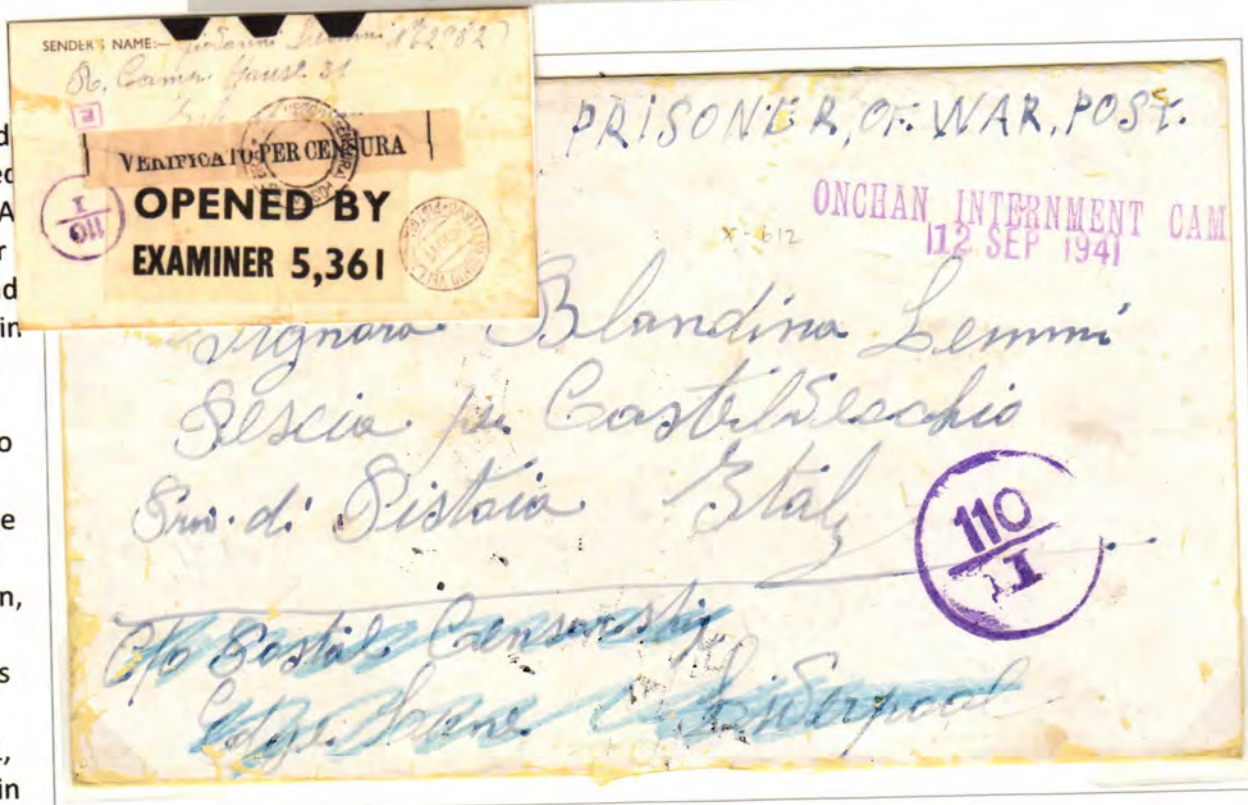 SENDER'S NAME:— Giovanni Lemmi
House 31
E
VERIFICATO PER CENSURA
OPENED BY
EXAMINER 5,361
110
I
PRISONER, OF. WAR, POST.
ONCHAN INTERNMENT CAM
12 SEP 1941
X-612
Signora Blandina Lemmi
Pescia per Castelvecchio
Prov. di Pistoia Italy
110
II
C/o Postal Censorship
Edge Lane Liverpool
d
ed
A
r
nd
in
o
e
n,
s
,
in